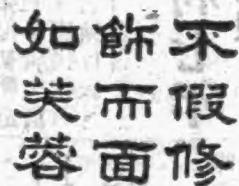 不假修
飾而面
如芙蓉